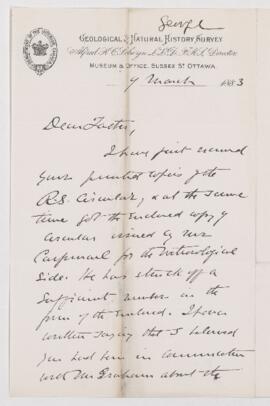 George
GEOLOGICAL & NATURAL HISTORY SURVEY
Alfred R. C. Selwyn LL.D. F.R.S. Director
MUSEUM & OFFICE. SUSSEX ST. OTTAWA.
9 March 1883
Dear Father,
I have just received
your printed copies of the
R.S. Circular, & at the same
time got the enclosed copy of
circular issued by Mr
Carpmael for the Meteorological
Side. He has struck off a
sufficient number in the
form of the enclosed. I have
written saying that I believed
you had been in communication
with Mr Graham about the